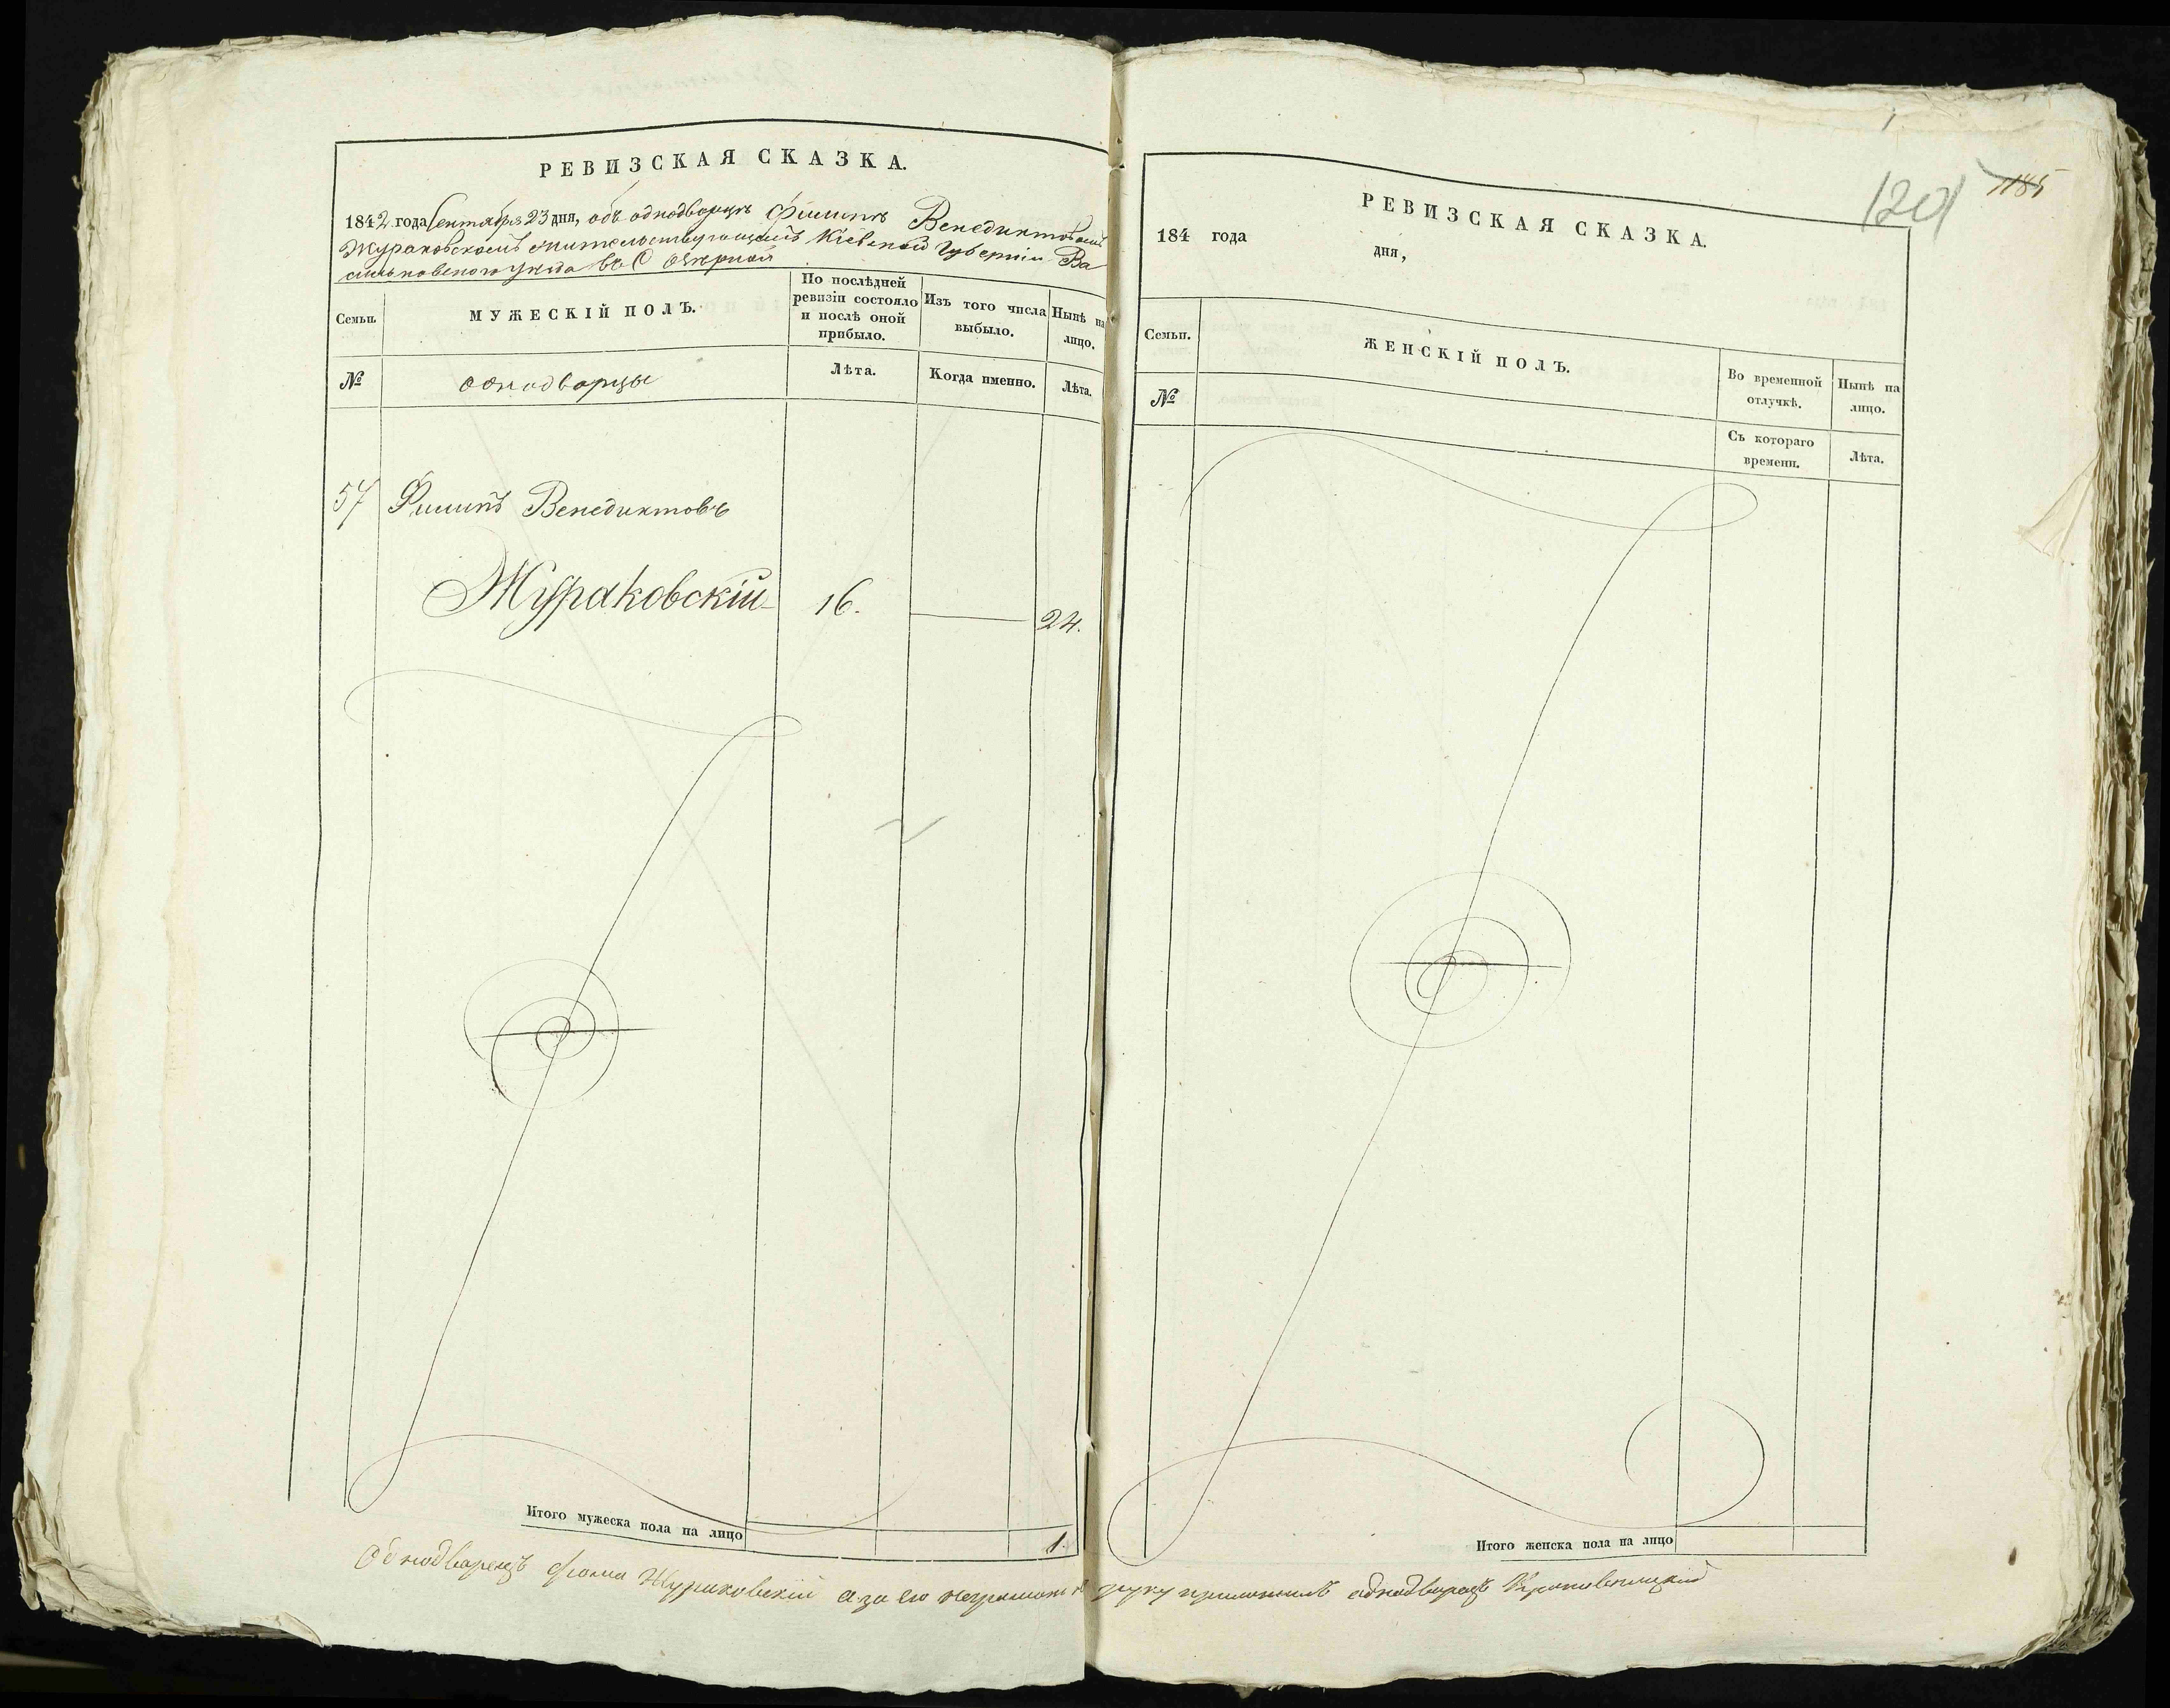 РЕВИЗСКАЯ СКАЗКА.
1842 года Сентября 23 дня, объ однодворцѣ Филиппѣ Венедиктовѣ
Жураковскомъ жительствующемъ Кіевской Губерніи Ва
сильковскаго уѣзда въ С Озерной
Семьи.
МУЖЕСКІЙ ПОЛЪ.
По послѣдней
ревизіи состояло
и послѣ оной
прибыло.
Изъ того числа
выбыло.
Нынѣ на
лицо.
№
однодворцы
Лѣта.
Когда именно.
Лѣта.
57 Филипъ Венедиктовъ
Жураковскій 16. 24.
Итого мужеска пола на лицо 1.
1185
1201
РЕВИЗСКАЯ СКАЗКА.
184 года дня,
Семьи.
ЖЕНСКІЙ ПОЛЪ.
Во временной
отлучкѣ.
Нынѣ на
лицо.
№
Съ котораго
времени.
Лѣта.
Итого женска пола на лицо
Однодворецъ Фома Жураковскій а за его неграмотн руку приложилъ однодворецъ